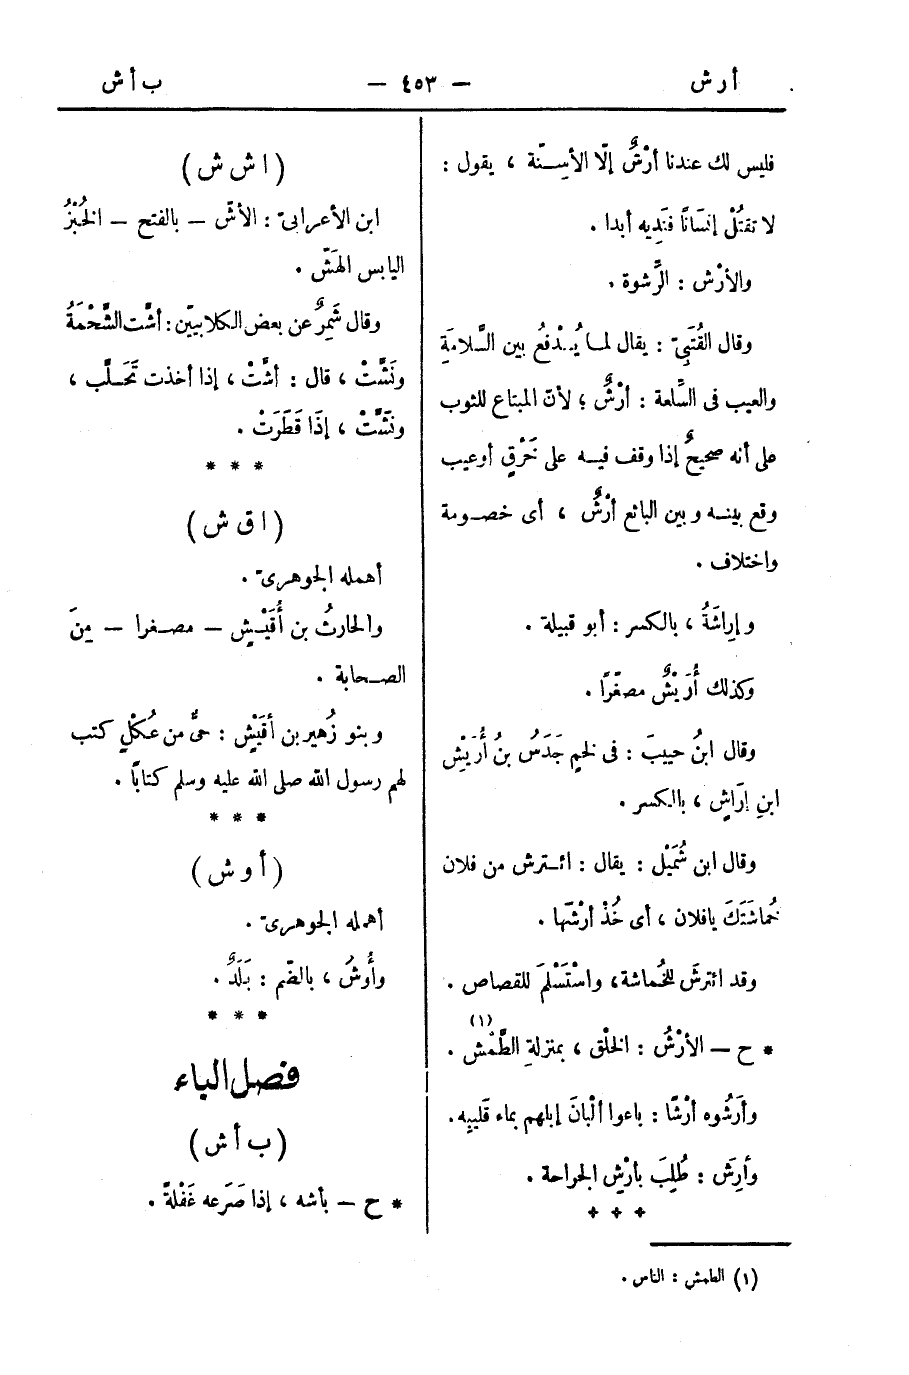 أ ر ش — ٤٥٣ — ب أ ش
فليس لك عندنا أَرْشٌ إلّا الأسِنّة ، يقول :
لا تقتُلْ إنسَانًا فنَدِيه أبدا .
والأرْش : الرَّشوة .
وقال القُتَبِىّ : يقال لما يُدْفَعُ بين السَّلامةِ
والعيب فى السِّلعة : أرْشٌ ؛ لأنّ المبتاع للثوب
على أنه صحيحٌ إذا وقف فيه على خَرْقٍ أوعيب
وقع بينه وبين البائع أرْشٌ ، أى خصومة
واختلاف .
وإراشَةُ ، بالكسر : أبو قبيلة .
وكذلك أُرَيْشٌ مصغّرًا .
وقال ابنُ حبيبَ : فى لخمٍ جَدَسُ بنُ أُرَيْشِ
ابنِ إرَاشٍ ، بالكسر .
وقال ابن شُمَيْل : يقال : ائترش من فلان
خُماشَتَكَ يافلان ، أى خُذْ أرْشَها .
وقد ائترشَ للخُماشة، واسْتَسْلَمَ للقصاص .
* ح — الأَرْشُ : الخلْق ، بمنزلةِ الطَّمْش (١) .
وأرَشُوه أرْشًا : باعوا ألْبانَ إبلهم بماء قَليبِه .
وأرِشَ : طُلِبَ بأرْشِ الجراحة .
* * *
(١) الطمش : الناس .
( ا ش ش )
ابن الأعرابىّ : الأشّ — بالفتح — الخُبْزُ
اليابس الهَشّ .
وقال شَمِرٌ عن بعض الكلابيّين : أشّت الشَّحْمَةُ
ونَشَّتْ ، قال : أشّتْ ، إذا أخذت تَحَلَّب ،
ونشَّتْ ، إذَا قَطَرَتْ .
* * *
( ا ق ش )
أهمله الجوهرىّ .
والحارثُ بن أُقَيْشٍ — مصغرا — مِنَ
الصحابة .
وبنو زُهير بن أقَيْشٍ : حىٌّ من عُكْلٍ كتب
لهم رسول الله صلى الله عليه وسلم كتابًا .
* * *
( أ و ش )
أهمله الجوهرىّ .
وأُوشُ ، بالضّم : بَلَدٌ .
* * *
فصل الباء
( ب أ ش )
* ح — بأشه ، إذا صَرَعه غَفْلةً .